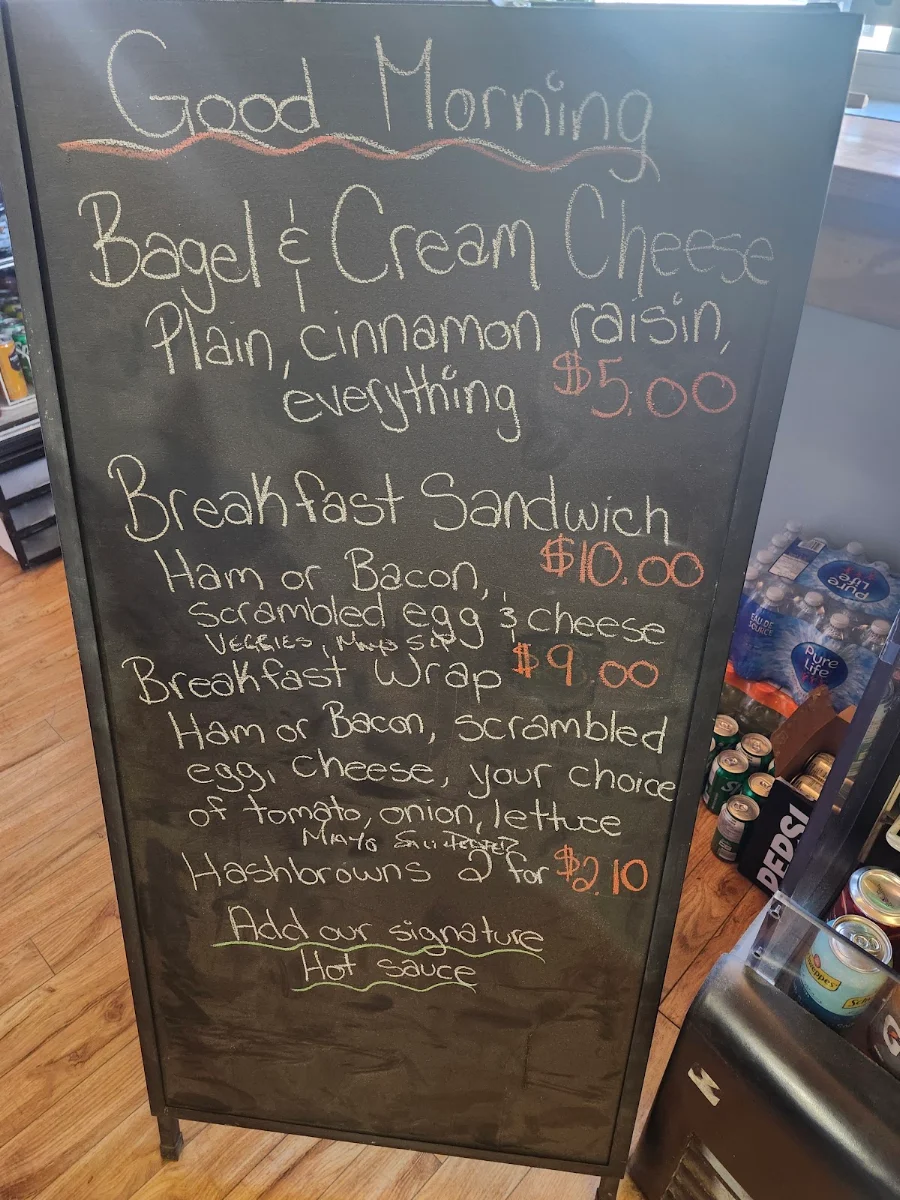 Good Morning
Bagel & Cream Cheese
Plain, cinnamon raisin,
everything $5.00
Breakfast Sandwich
Ham or Bacon, $10.00
scrambled egg & cheese
VEGGIES, MAYO S&P
Breakfast Wrap $9 00
Ham or Bacon, scrambled
egg, cheese, your choice
of tomato, onion, lettuce
MAYO
Hashbrowns 2 for $2.10
Add our signature
Hot sauce
Pure Life
EAU DE SOURCE
Pure Life
PEPSI